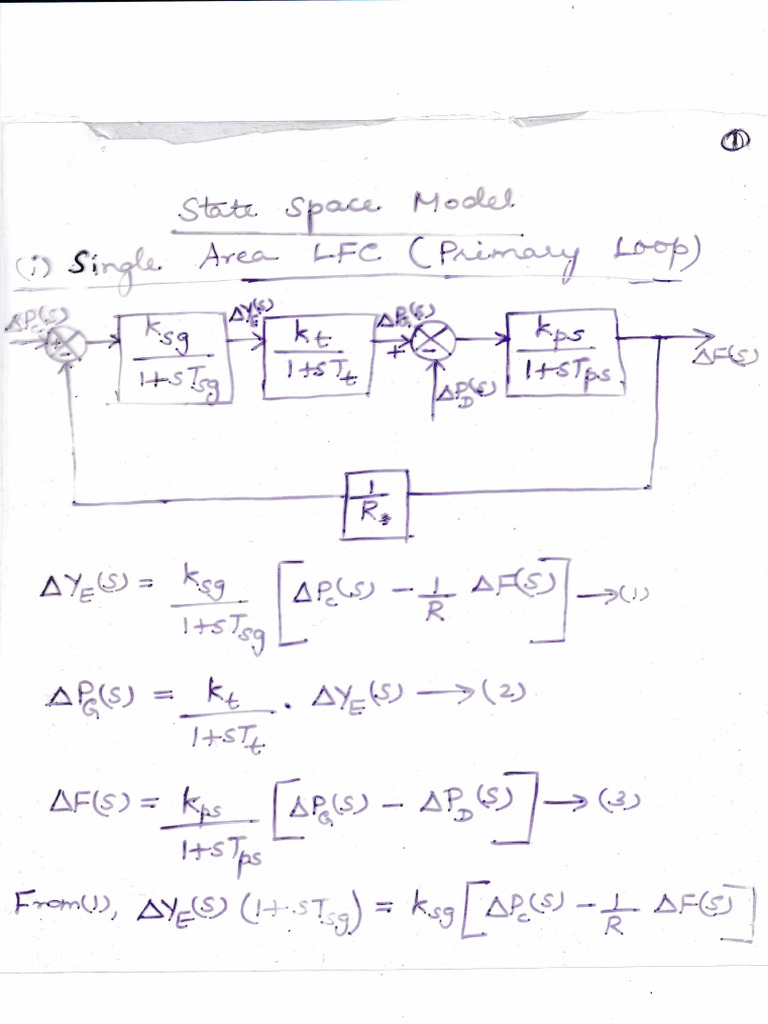 ①
State Space Model
(i) Single Area LFC (Primary Loop)
ΔP_C(S) + - K_sg / 1+sT_sg ΔY_E(S) K_t / 1+sT_t ΔP_G(S) + - ΔP_D(S) K_ps / 1+sT_ps ΔF(S)
1 / R
ΔY_E(S) = K_sg / 1+sT_sg [ΔP_C(S) − 1/R ΔF(S)] → (1)
ΔP_G(S) = K_t / 1+sT_t . ΔY_E(S) → (2)
ΔF(S) = K_ps / 1+sT_ps [ΔP_G(S) − ΔP_D(S)] → (3)
From(1), ΔY_E(S) (1+sT_sg) = K_sg [ΔP_C(S) − 1/R ΔF(S)]